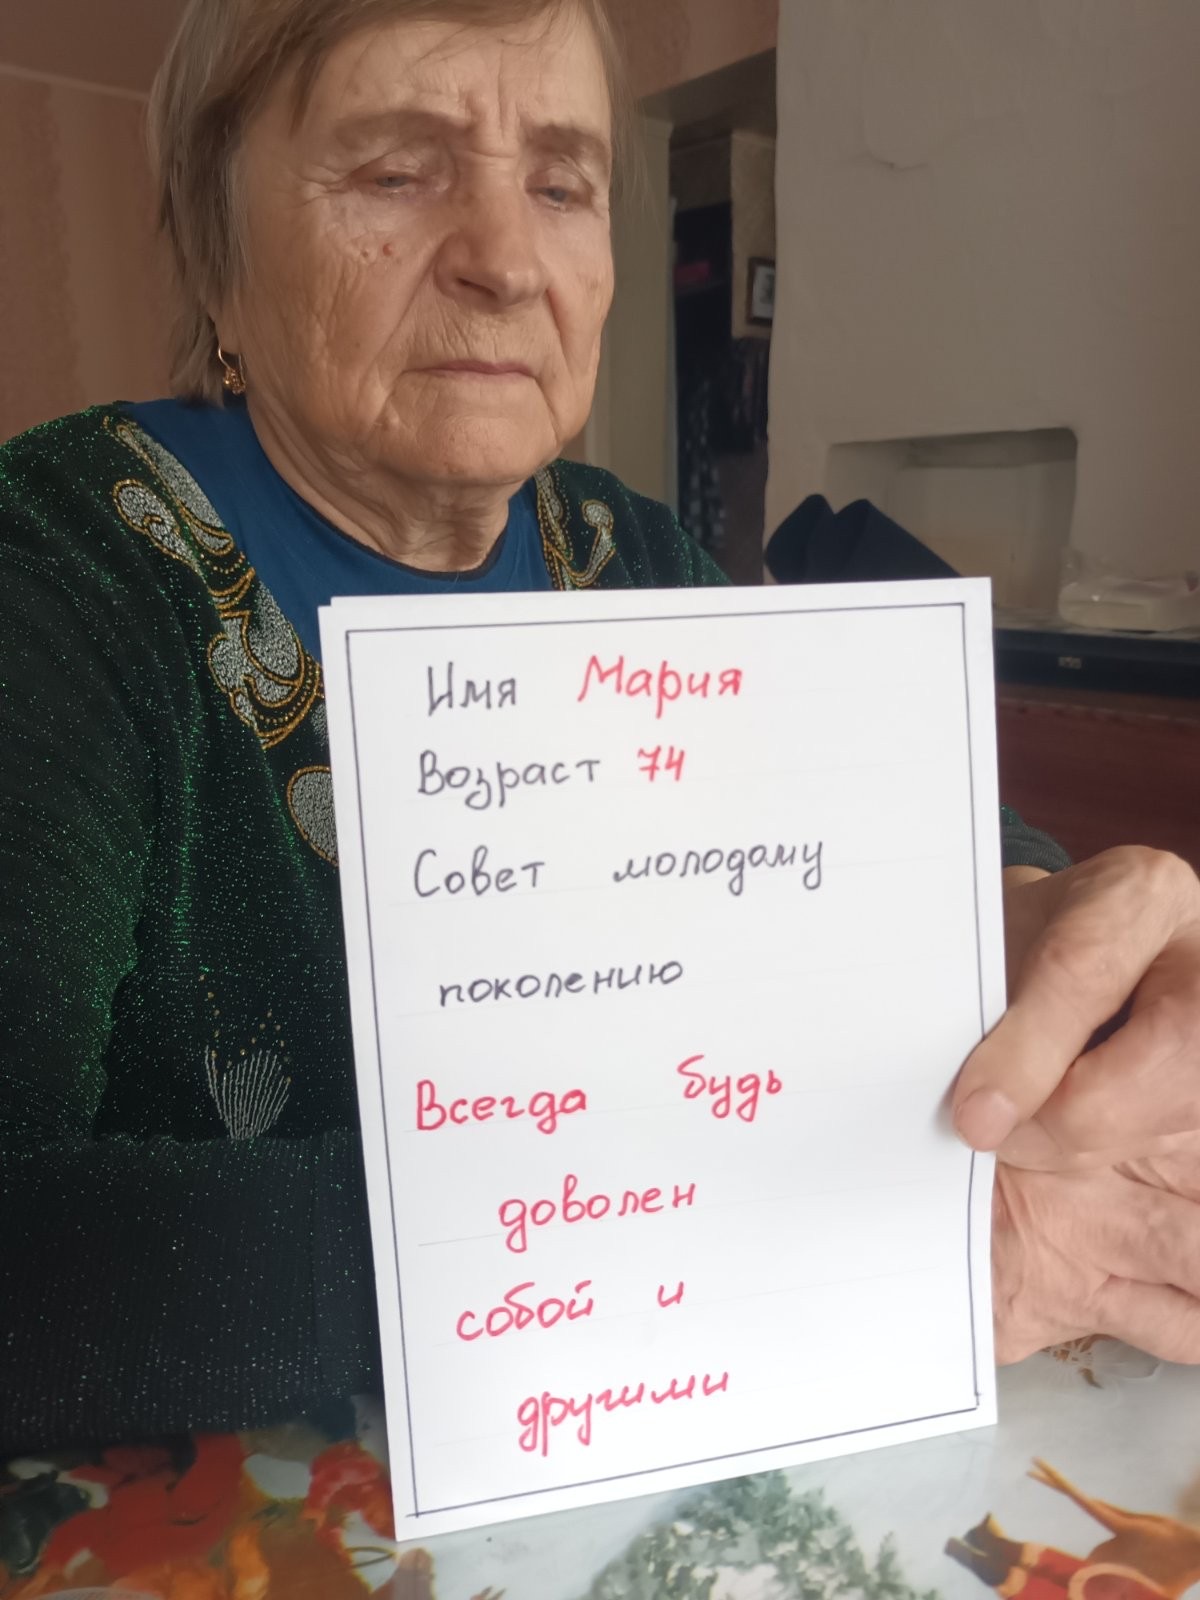 Имя Мария
Возраст 74
Совет молодому
поколению
Всегда будь
доволен
собой и
другими